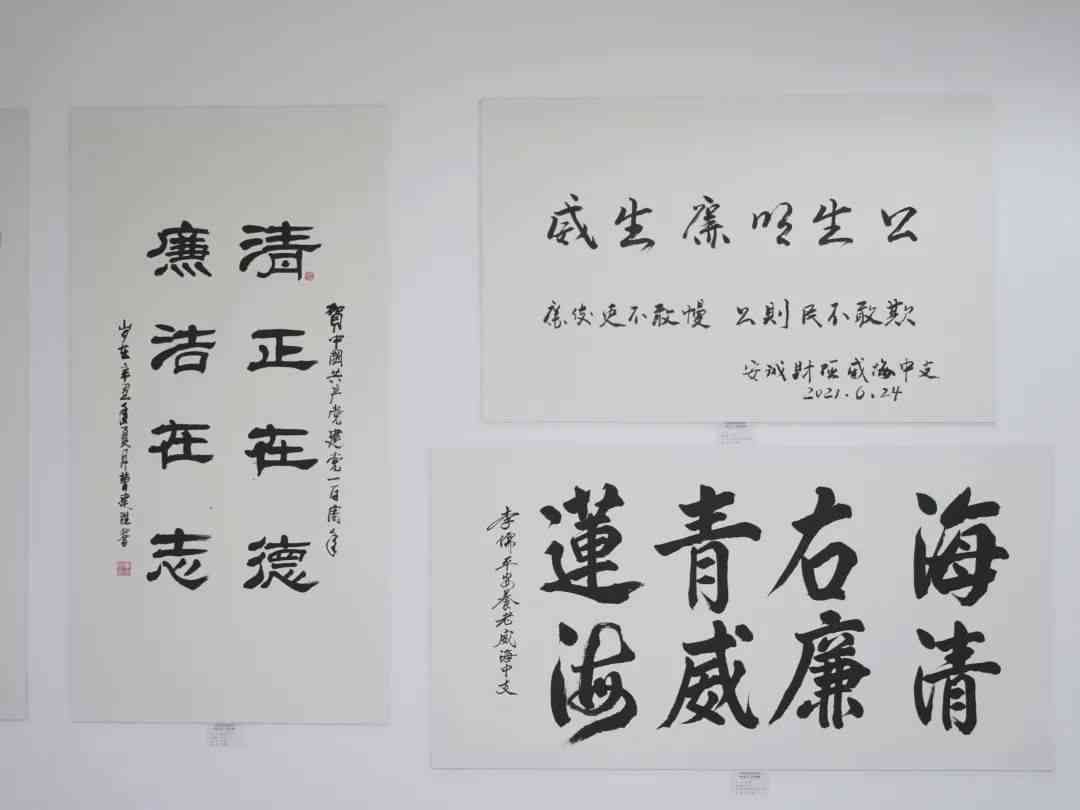 賀中國共产党建党一百周年
清正在德
廉洁在志
岁在辛丑夏月曹書
公生明廉生威
公則民不敢欺
廉吏不敢慢
安诚財险威海中支
2021.6.24
海清
右廉
青威
蓮海
李平安養老威海中支